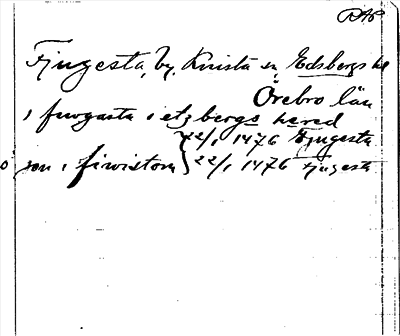 RAP
Fjugesta, by, Knista sn, Edsbergs hd
Örebro län
i fiwgasta i etzbergs hered
22/1 1476 Fjugesta
jon i fiwistom } 22/1 1476 Fjugesta